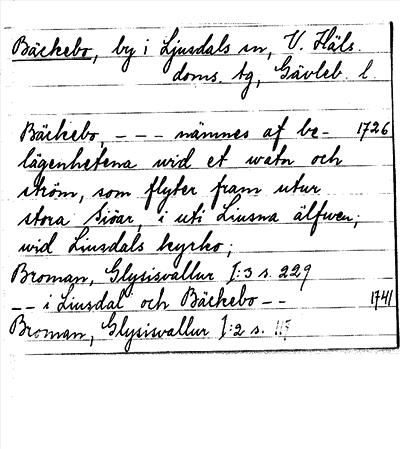 Bäckebo, by i Ljusdals sn, V. Häls.
doms. tg, Gävleb. l.
Bäckebo, - - - nämnes af be- 1726
lägenhetena wid et watn och
ström, som flyter fram utur
stora Siöar, i uti Liusna älfwen;
wid Liusdals kyrko;
Broman, Glysisvallur I:3 s. 229
- - i Liusdal och Bäckebo - - 1741
Broman, Glysisvallur I:2 s. 115